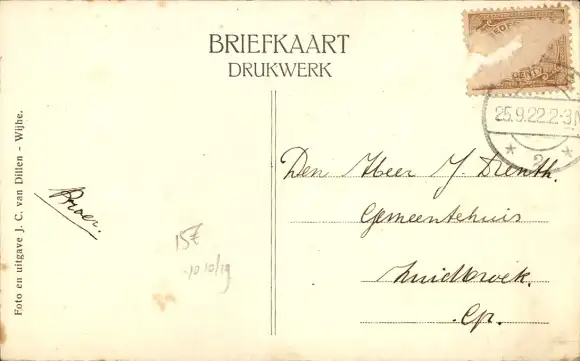 BRIEFKAART
DRUKWERK
CENT
25.9.22.2-3N
2
Foto en uitgave J. C. van Dillen - Wijhe.
Broer.
Den Heer J. Drenth.
Gemeentehuis
Zuidbroek.
Gr.
10/19